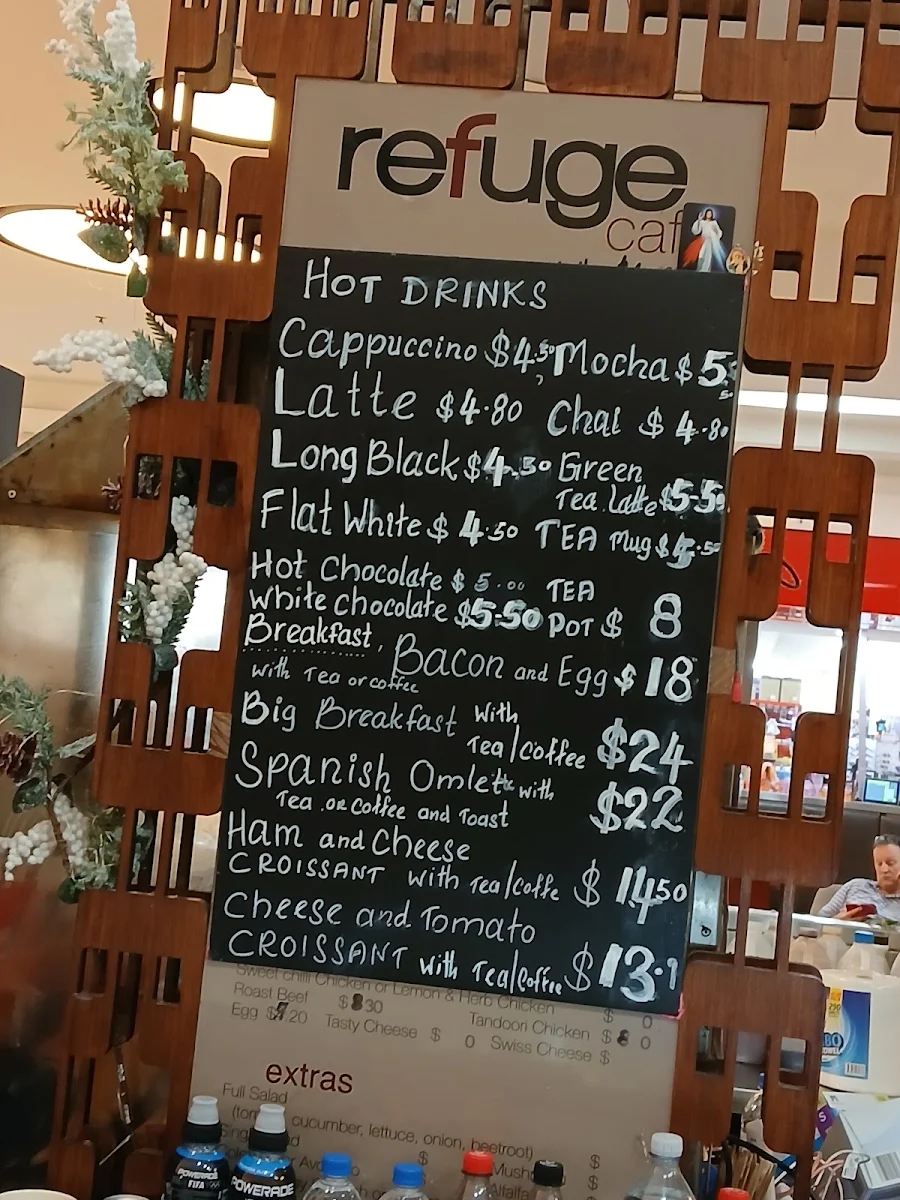 refuge
caf
HOT DRINKS
Cappuccino $4.50 Mocha $5.50
Latte $4.80 Chai $4.80
Long Black $4.50 Green
Tea Latte $5.50
Flat White $4.50 TEA Mug $4.50
Hot Chocolate $5.00 TEA
White Chocolate $5.50 POT $ 8
Breakfast, Bacon and Egg $18
with Tea or coffee
Big Breakfast with
Tea/coffee $24
Spanish Omlett with
Tea or coffee and Toast $22
Ham and Cheese
CROISSANT with Tea/coffe $14.50
Cheese and Tomato
CROISSANT with Tea/Coffee $13.
Sweet chilli Chicken or Lemon & Herb Chicken
Roast Beef $8.30 $ 0
Egg $ .20 Tasty Cheese $ 0 Tandoori Chicken $8 0
Swiss Cheese $
extras
Full Salad
cucumber, lettuce, onion, beetroot)
$ $
POWERADE
FIFA
POWERADE